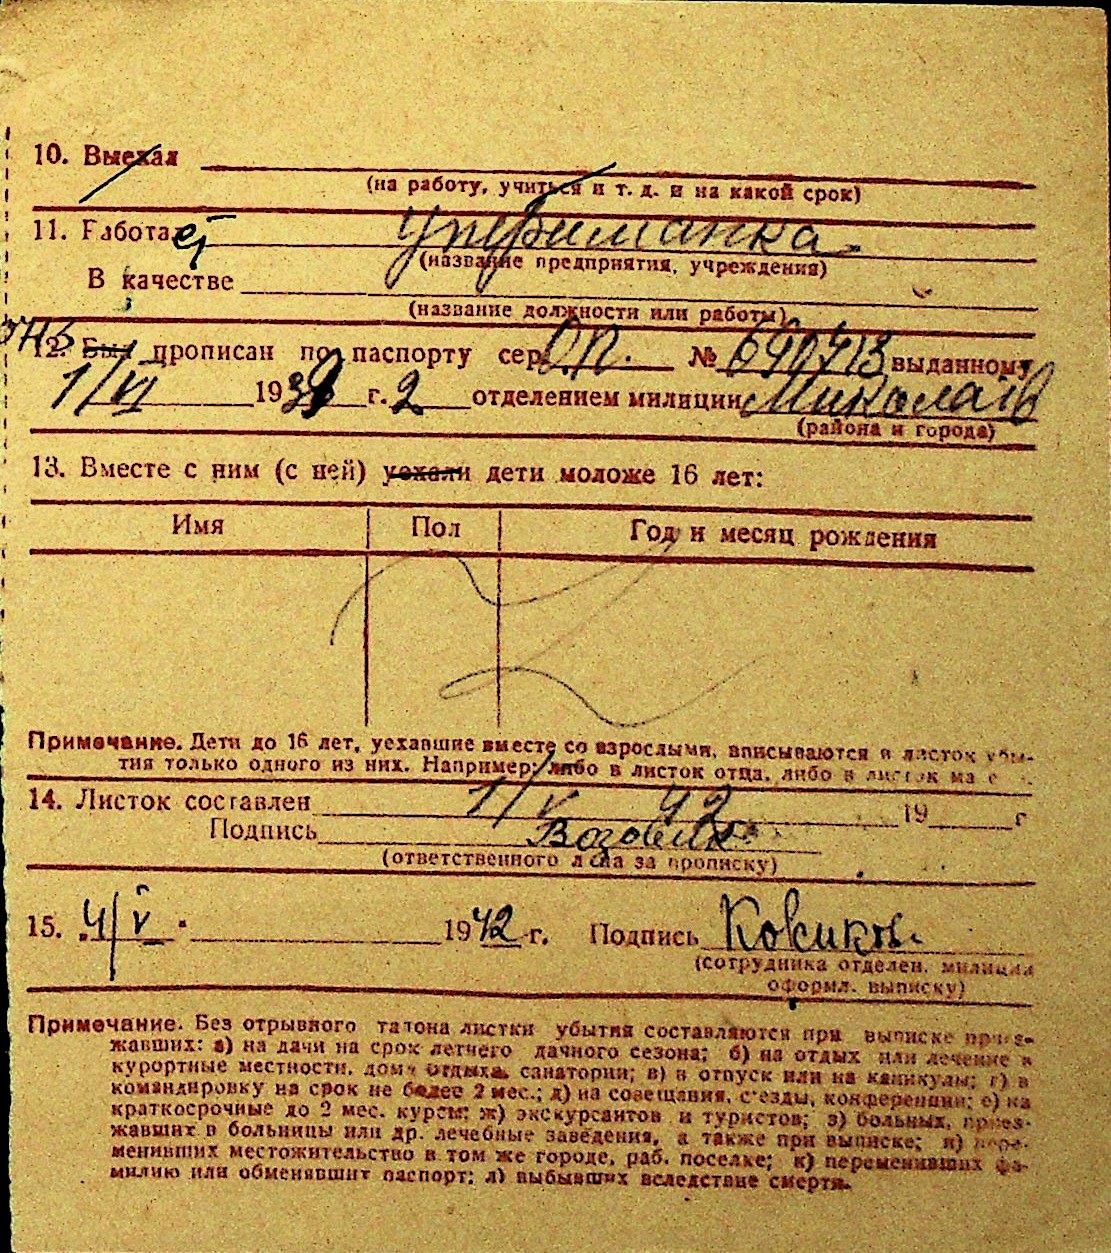 10. Выехал
(на работу, учиться и т. д. и на какой срок)
11. Работает
(название предприятия, учреждения)
В качестве
(название должности или работы)
12. Был прописан по паспорту сер. № 690713 выданному
1/VI 1939 г. 2 отделением милиции Николаев
(района и города)
13. Вместе с ним (с ней) уехали дети моложе 16 лет:
Имя Пол Год и месяц рождения
Примечание. Дети до 16 лет, уехавшие вместе со взрослыми, вписываются в листок убы-
тия только одного из них. Например: либо в листок отца, либо в листок
14. Листок составлен 1/V 42 19 г
Подпись
(ответственного лица за прописку)
15. 4/V 1942 г. Подпись
(сотрудника отделен. милиции
оформл. выписку)
Примечание. Без отрывного талона листки убытия составляются при выписке приез-
жавших: а) на дачи на срок летнего дачного сезона; б) на отдых или лечение в
курортные местности, дома отдыха, санатории; в) в отпуск или на каникулы; г) в
командировку на срок не более 2 мес.; д) на совещания, съезды, конференции; е) на
краткосрочные до 2 мес. курсы; ж) экскурсантов и туристов; з) больных, приез-
жавших в больницы или др. лечебные заведения, а также при выписке; и) пере-
менивших местожительство в том же городе, раб. поселке; к) переменивших фа-
милию или обменявших паспорт; л) выбывших вследствие смерти.